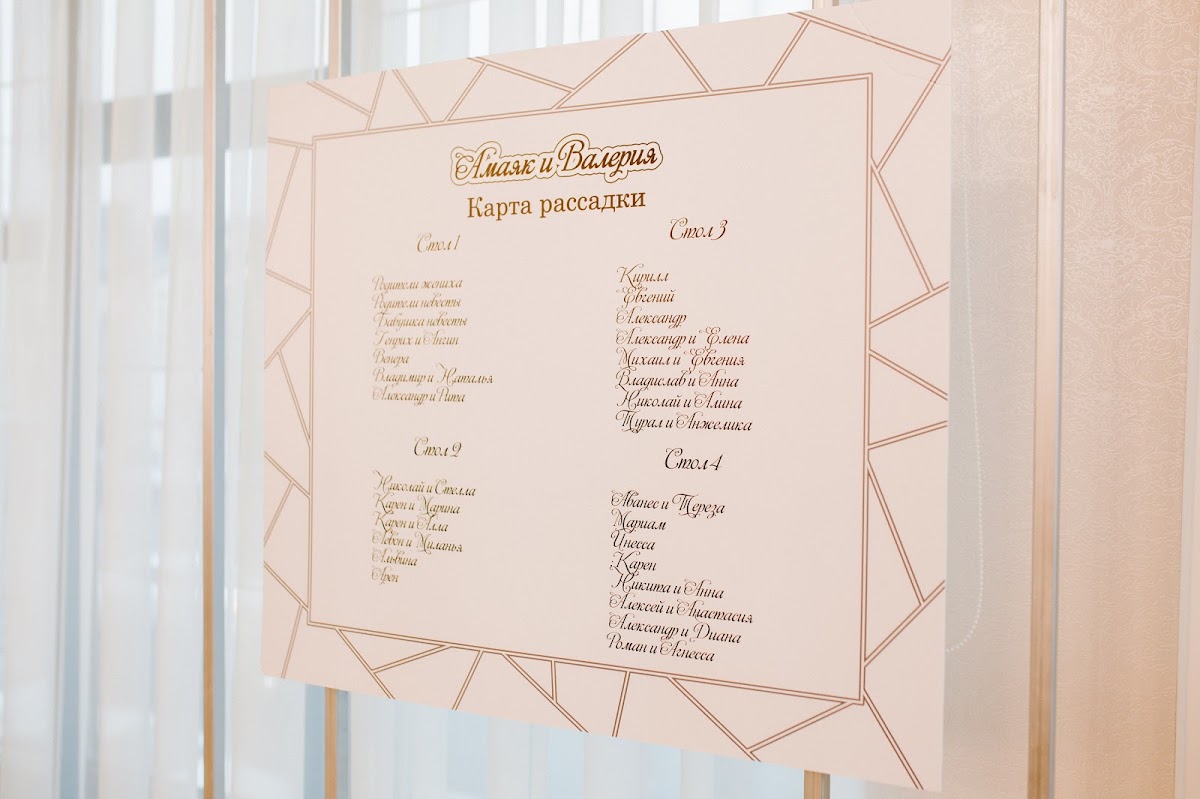 Амаяк и Валерия
Карта рассадки
Стол 1
Родители жениха
Родители невесты
Бабушка невесты
Генрих и Ангин
Венера
Владимир и Наталья
Александр и Рита
Стол 2
Николай и Стелла
Карен и Марина
Карен и Алла
Левон и Миланья
Альвина
Арен
Стол 3
Кирилл
Евгений
Александр
Александр и Елена
Михаил и Евгения
Владислав и Анна
Николай и Алина
Турал и Анжелика
Стол 4
Аванес и Тереза
Мариам
Инесса
Карен
Никита и Анна
Алексей и Анастасия
Александр и Диана
Роман и Агнесса